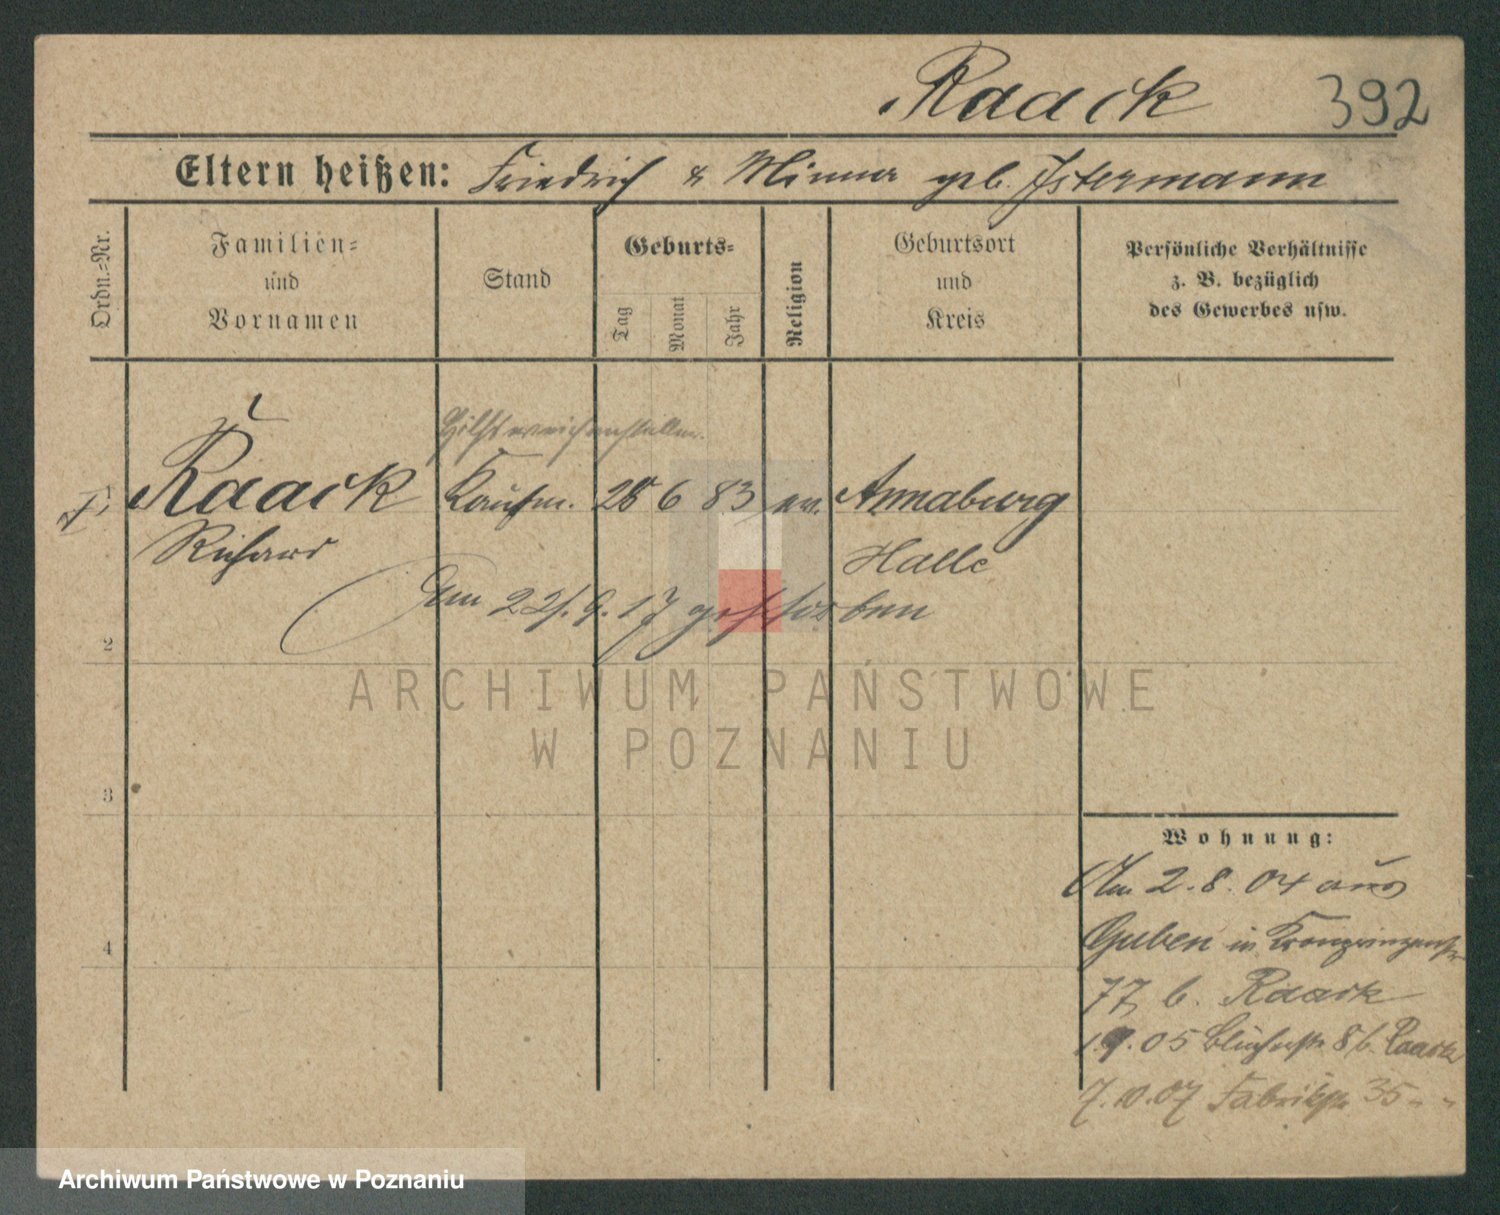 Raack 392
Eltern heißen: Friedrich & Minna geb. Istermann
Ordn.=Nr.
Familien=
und
Vornamen
Stand
Geburts=
Tag
Monat
Jahr
Religion
Geburtsort
und
Kreis
Persönliche Verhältnisse
z. B. bezüglich
des Gewerbes usw.
Raack Kaufm. 28 6 83 ev. Annaburg
Richard Halle
Am 22/.9.17 gestorben
2
3
4
Wohnung:
Am 2.8.04 aus
Guben in Kronprinzenstr
77, b. Raack
1.9.05 Blücherstr 8 b. Raack
7.10.07 Fabrikstr 35 " "
ARCHIWUM PAŃSTWOWE
W POZNANIU
Archiwum Państwowe w Poznaniu